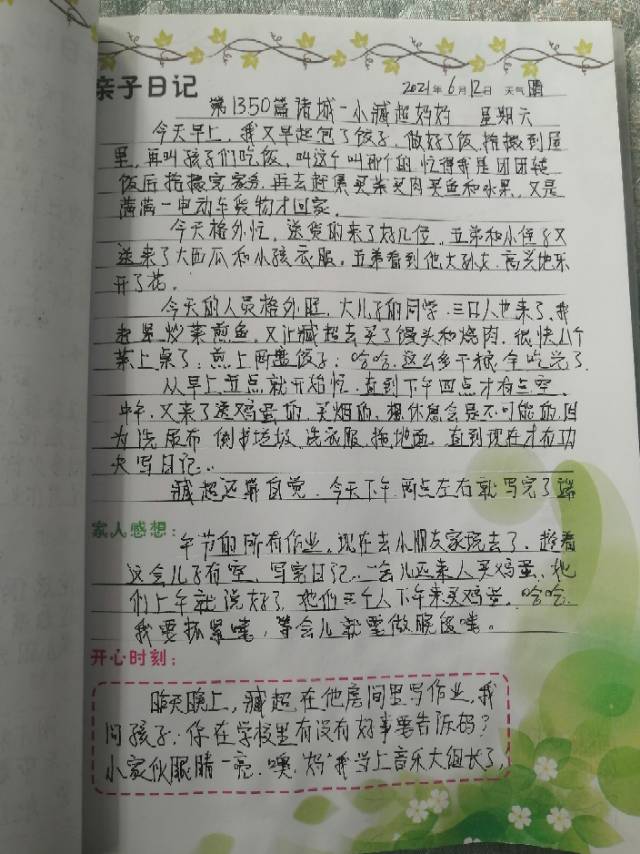 亲子日记 2021年6月12日 天气晴
第1350篇诸城-小臧超妈妈 星期六
今天早上,我又早起包了饺子,做好了饭,拾掇到屋
里,再叫孩子们吃饭,叫这个叫那个的忙得我是团团转
饭后拾掇完家务,再去赶集买菜买肉买鱼和水果,又是
满满一电动车货物才回家。
今天格外忙,送货的来了好几位,五弟和小侄子又
送来了大西瓜和小孩衣服,五弟看到他大孙女,高兴地乐
开了花。
今天的人员格外旺,大儿子的同学,三口人也来了,我
赶紧炒菜煎鱼,又让臧超去买了馒头和烧肉,很快八个
菜上桌了,煎上两盘饺子,哈哈,这么多干粮全吃完了.
从早上五点就开始忙,直到下午四点才有点空,
中午,又来了送鸡蛋的,买烟的,想休息会是不可能的,因
为洗尿布 倒垃圾、洗衣服,拖地面,直到现在才有功
夫写日记..
臧超还算自觉,今天下午两点左右就写完了端
家人感想:
午节的所有作业,现在去小朋友家玩去了,趁着
这会儿子有空,写写日记..一会儿还来人买鸡蛋,他
们上午就说好了,他们三个人下午来买鸡蛋,哈哈,
我要抓紧喽,等会儿就要做晚饭喽。
开心时刻:
昨天晚上,臧超在他房间里写作业,我
问孩子:你在学校里有没有好事要告诉妈?
小家伙眼睛一亮,噢,"妈"我当上音乐大组长了,